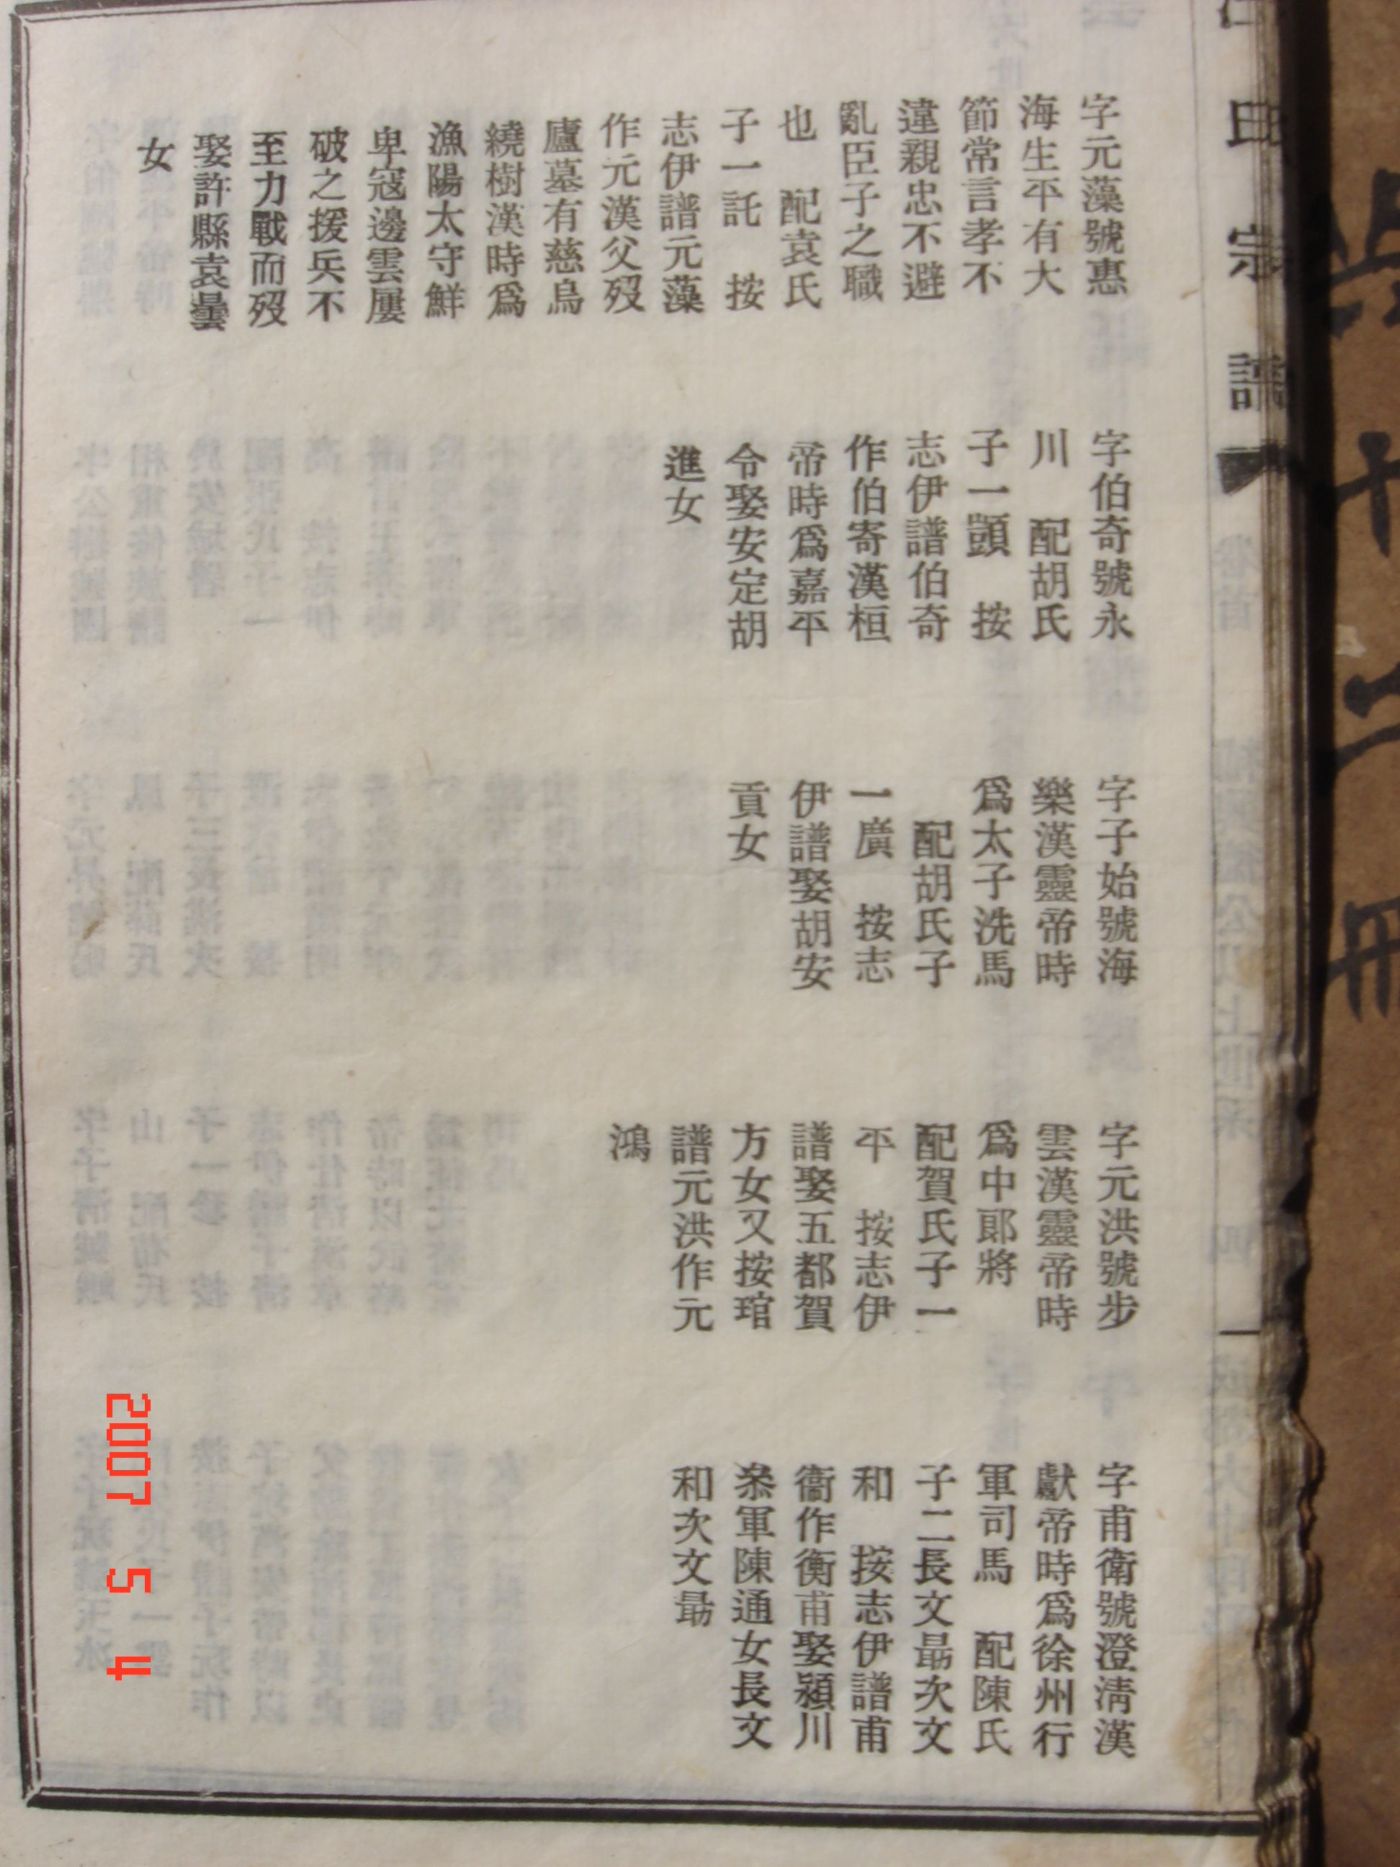 氏宗譜
卷首
字元藻號惠
海生平有大
節常言孝不
違親忠不避
亂臣子之職
也　配袁氏
子一託　按
志伊譜元藻
作元漢父歿
廬墓有慈烏
繞樹漢時爲
漁陽太守鮮
卑寇邊雲屢
破之援兵不
至力戰而歿
娶許縣袁曇
女
字伯奇號永
川　配胡氏
子一顗　按
志伊譜伯奇
作伯寄漢桓
帝時爲嘉平
令娶安定胡
進女
字子始號海
樂漢靈帝時
爲太子洗馬
配胡氏子
一廣　按志
伊譜娶胡安
貢女
字元洪號步
雲漢靈帝時
爲中郎將
配賀氏子一
平　按志伊
譜娶五都賀
方女又按琯
譜元洪作元
鴻
字甫衛號澄淸漢
獻帝時爲徐州行
軍司馬　配陳氏
子二長文勗次文
和　按志伊譜甫
衞作衡甫娶潁川
叅軍陳通女長文
和次文勗
十二冊
2007 5 4